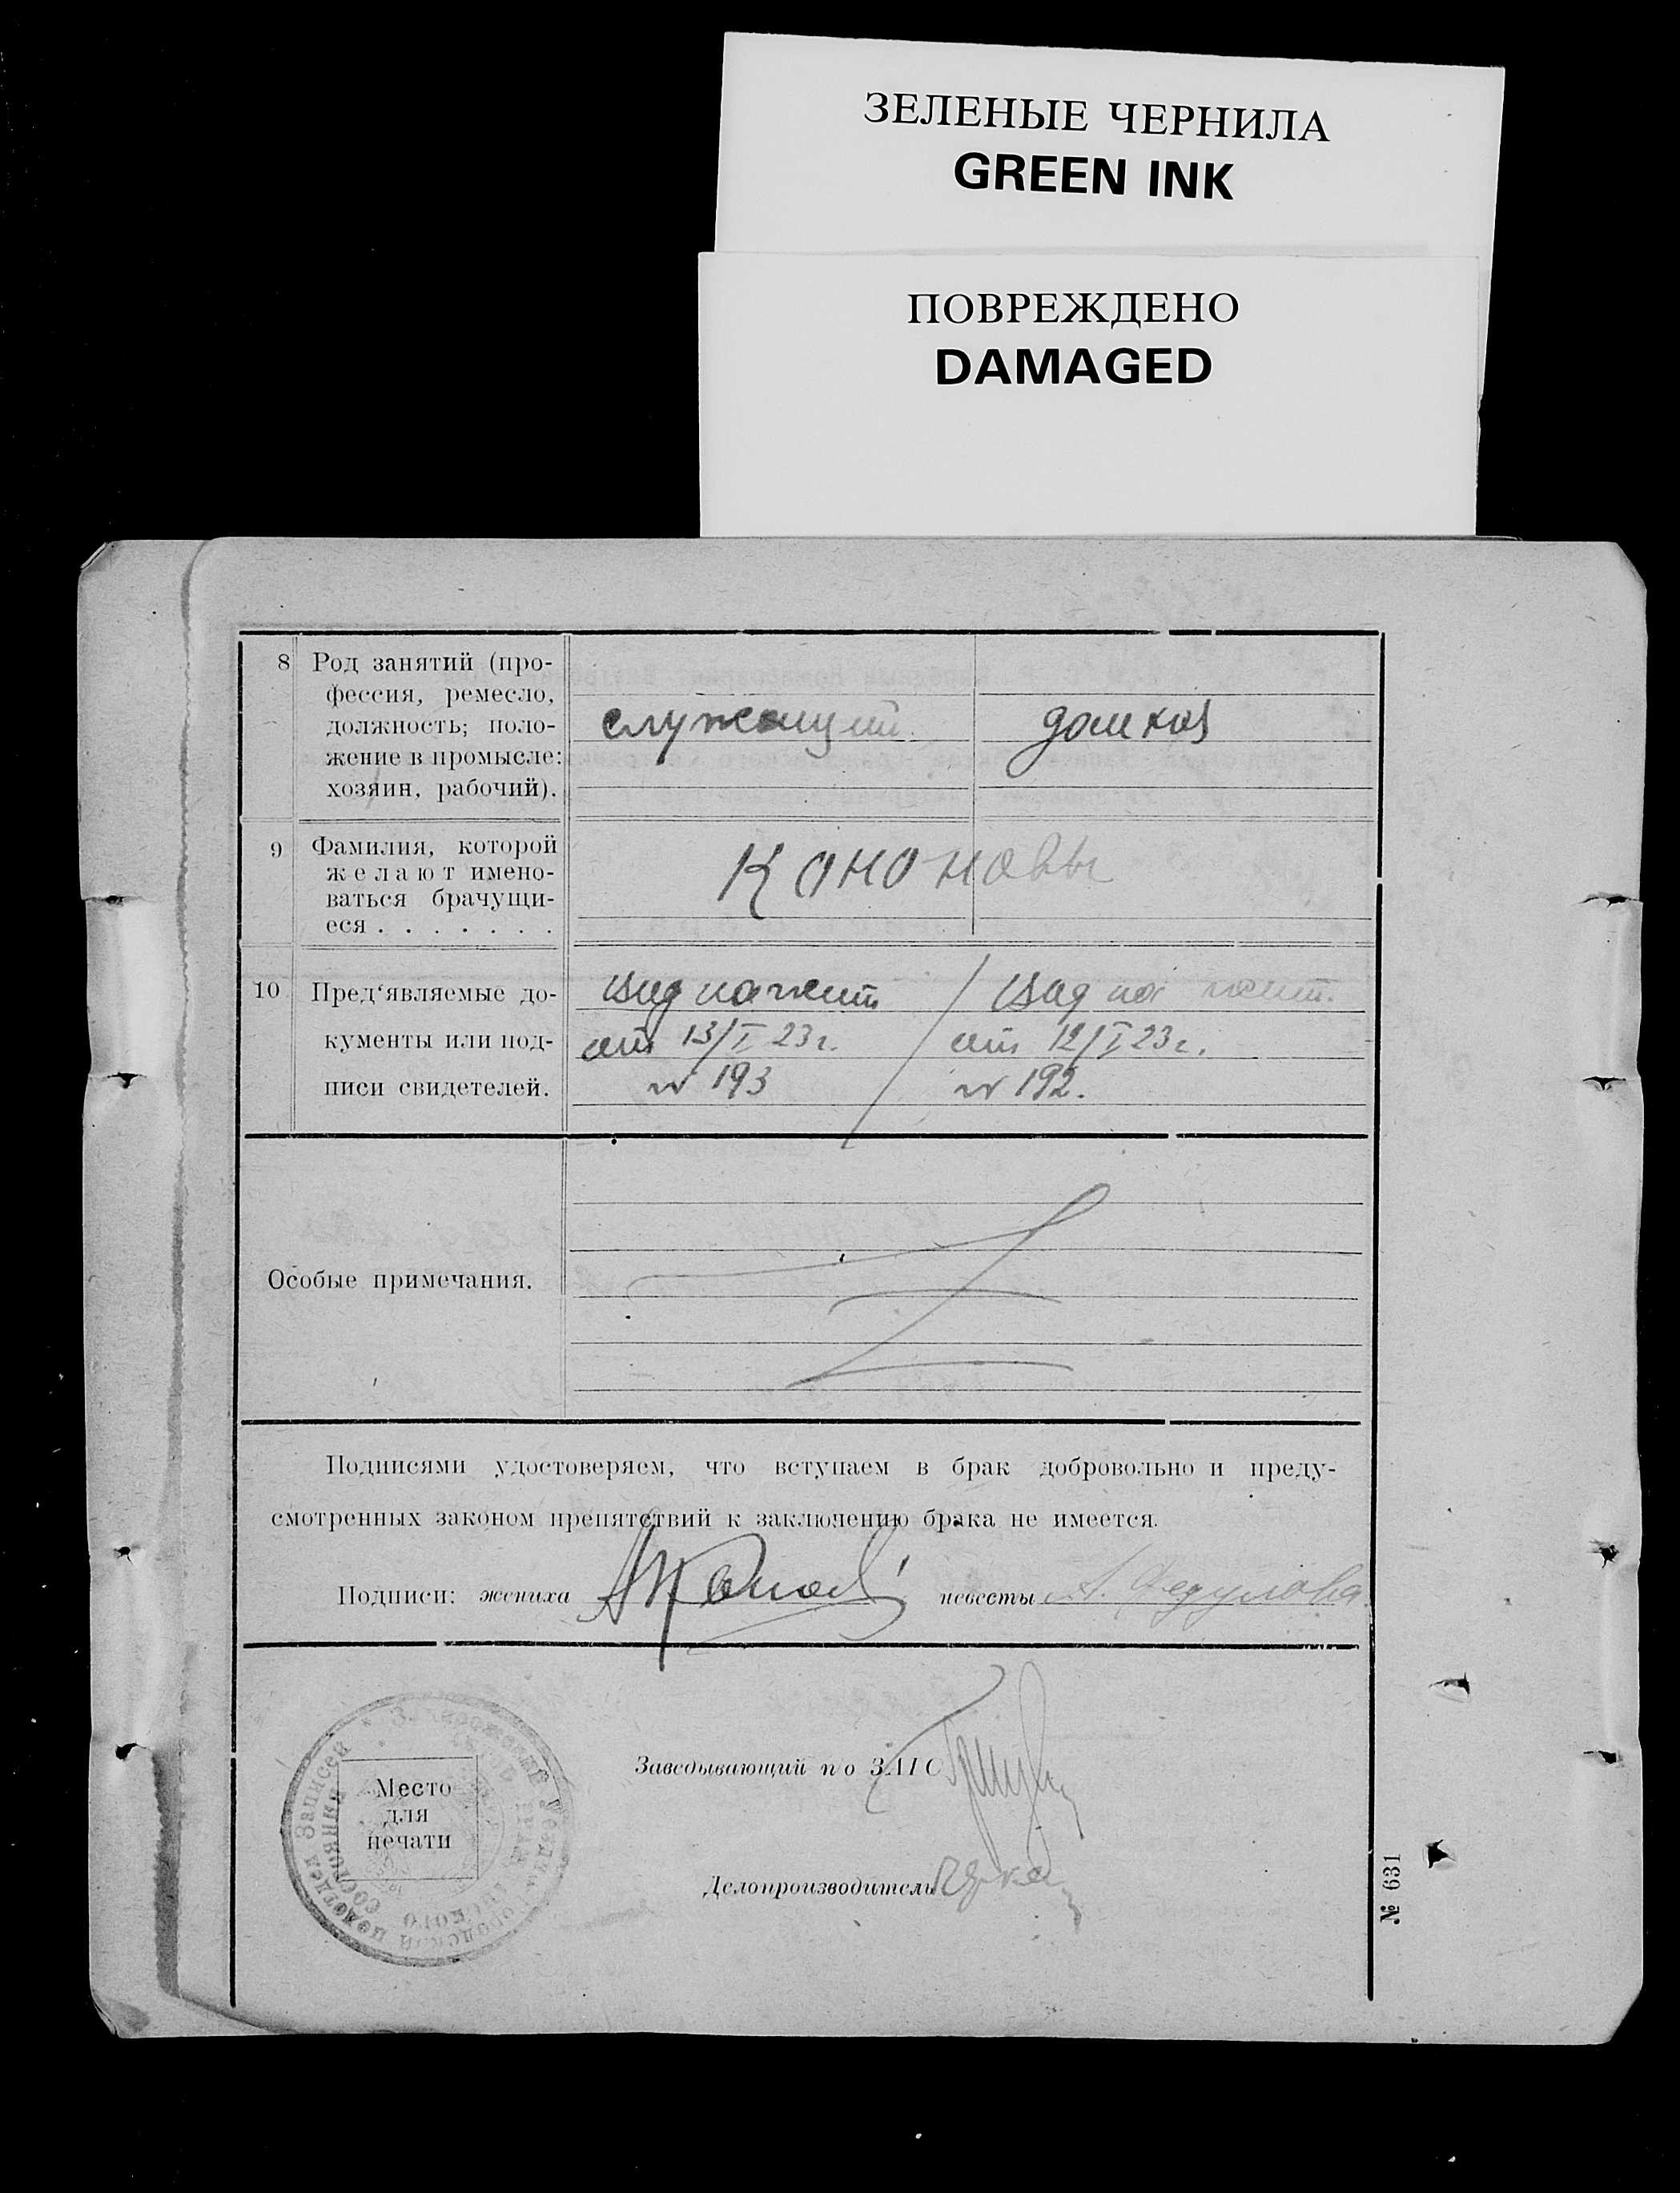 ЗЕЛЕНЫЕ ЧЕРНИЛА
GREEN INK
ПОВРЕЖДЕНО
DAMAGED
8 Род занятий (про-
фессия, ремесло,
должность; поло-
жение в промысле:
хозяин, рабочий).
служащий домхоз
9 Фамилия, которой
желают имено-
ваться брачущи-
еся . . . . . . .
Кононовы
10 Пред‘являемые до-
кументы или под-
писи свидетелей.
вид на жит / вид на жит.
от 13/I 23г. от 12/I 23г.
№ 193 № 192.
Особые примечания.
Подписями удостоверяем, что вступаем в брак добровольно и преду-
смотренных законом препятствий к заключению брака не имеется.
Подписи: жениха невесты А. Федулова
Место
для
печати
Заведывающий по ЗАГС
Делопроизводитель
№ 631